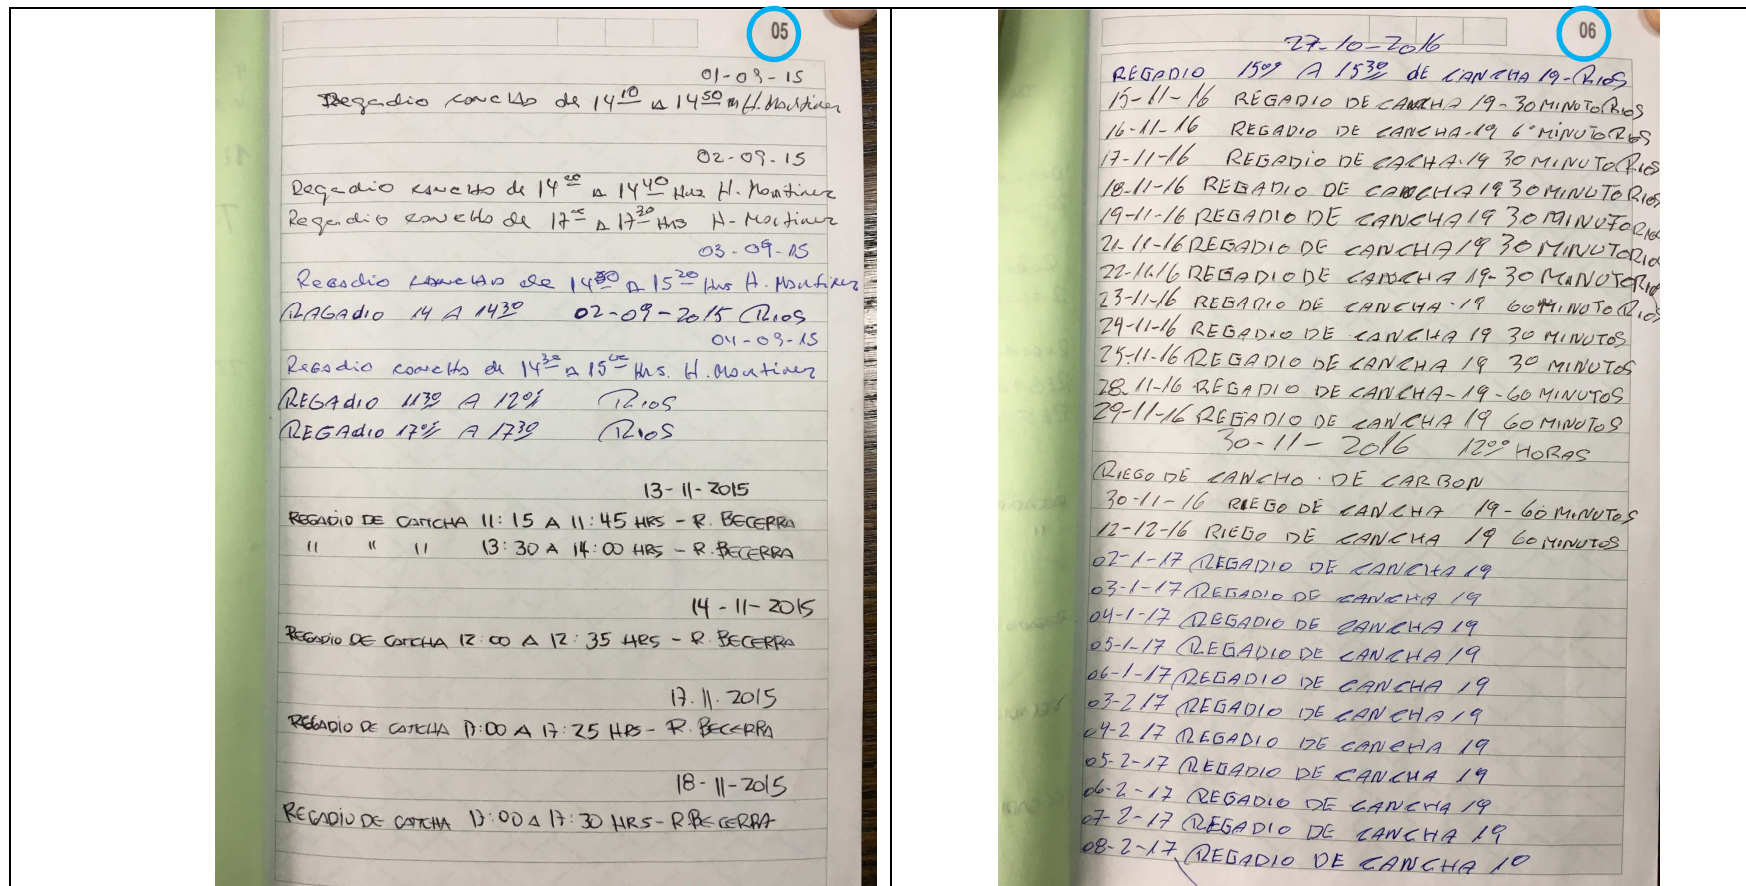 05
01-09-15
Regadio cancha de 14 10 a 14 50 H. Martinez
02-09-15
Regadio cancha de 14 00 a 14 40 Hrs H. Martinez
Regadio cancha de 17 00 a 17 30 Hrs H-Martinez
03-09-15
Regadio cancha de 14 50 a 15 20 Hrs H. Martinez
RAGADIO 14 A 14 30 02-09-2015 RIOS
04-09-15
Regadio cancha de 14 30 a 15 00 Hrs. H. Martinez
REGADIO 11 30 A 12 00 RIOS
REGADIO 17 00 A 17 30 RIOS
13-11-2015
REGADIO DE CANCHA 11:15 A 11:45 HRS - R. BECERRA
" " " 13:30 A 14:00 HRS - R. BECERRA
14-11-2015
REGADIO DE CANCHA 12:00 A 12:35 HRS - R. BECERRA
17.11.2015
REGADIO DE CANCHA 17:00 A 17:25 HRS - R. BECERRA
18-11-2015
REGADIO DE CANCHA 17:00 A 17:30 HRS - R BECERRA
06
27-10-2016
REGADIO 15 00 A 15 30 DE CANCHA 19-RIOS
15-11-16 REGADIO DE CANCHA 19-30 MINUTO RIOS
16-11-16 REGADIO DE CANCHA-19 60 MINUTO RIOS
17-11-16 REGADIO DE CACHA-19 30 MINUTO RIOS
18-11-16 REGADIO DE CANCHA 19 30 MINUTO RIOS
19-11-16 REGADIO DE CANCHA 19 30 MINUTO RIOS
21-11-16 REGADIO DE CANCHA 19 30 MINUTO RIOS
22-11-16 REGADIO DE CANCHA 19-30 MINUTO RIOS
23-11-16 REGADIO DE CANCHA-19 60 MINUTO RIOS
24-11-16 REGADIO DE CANCHA 19 30 MINUTOS
25-11-16 REGADIO DE CANCHA 19 30 MINUTOS
28-11-16 REGADIO DE CANCHA-19-60 MINUTOS
29-11-16 REGADIO DE CANCHA 19 60 MINUTOS
30-11-2016 12 00 HORAS
RIEGO DE CANCHO. DE CARBON
30-11-16 RIEGO DE CANCHA 19-60 MINUTOS
12-12-16 RIEGO DE CANCHA 19 60 MINUTOS
02-1-17 REGADIO DE CANCHA 19
03-1-17 REGADIO DE CANCHA 19
04-1-17 REGADIO DE CANCHA 19
05-1-17 REGADIO DE CANCHA 19
06-1-17 REGADIO DE CANCHA 19
03-2 17 REGADIO DE CANCHA 19
04-2 17 REGADIO DE CANCHA 19
05-2-17 REGADIO DE CANCHA 19
06-2-17 REGADIO DE CANCHA 19
07-2-17 REGADIO DE CANCHA 19
08-2-17 REGADIO DE CANCHA 10